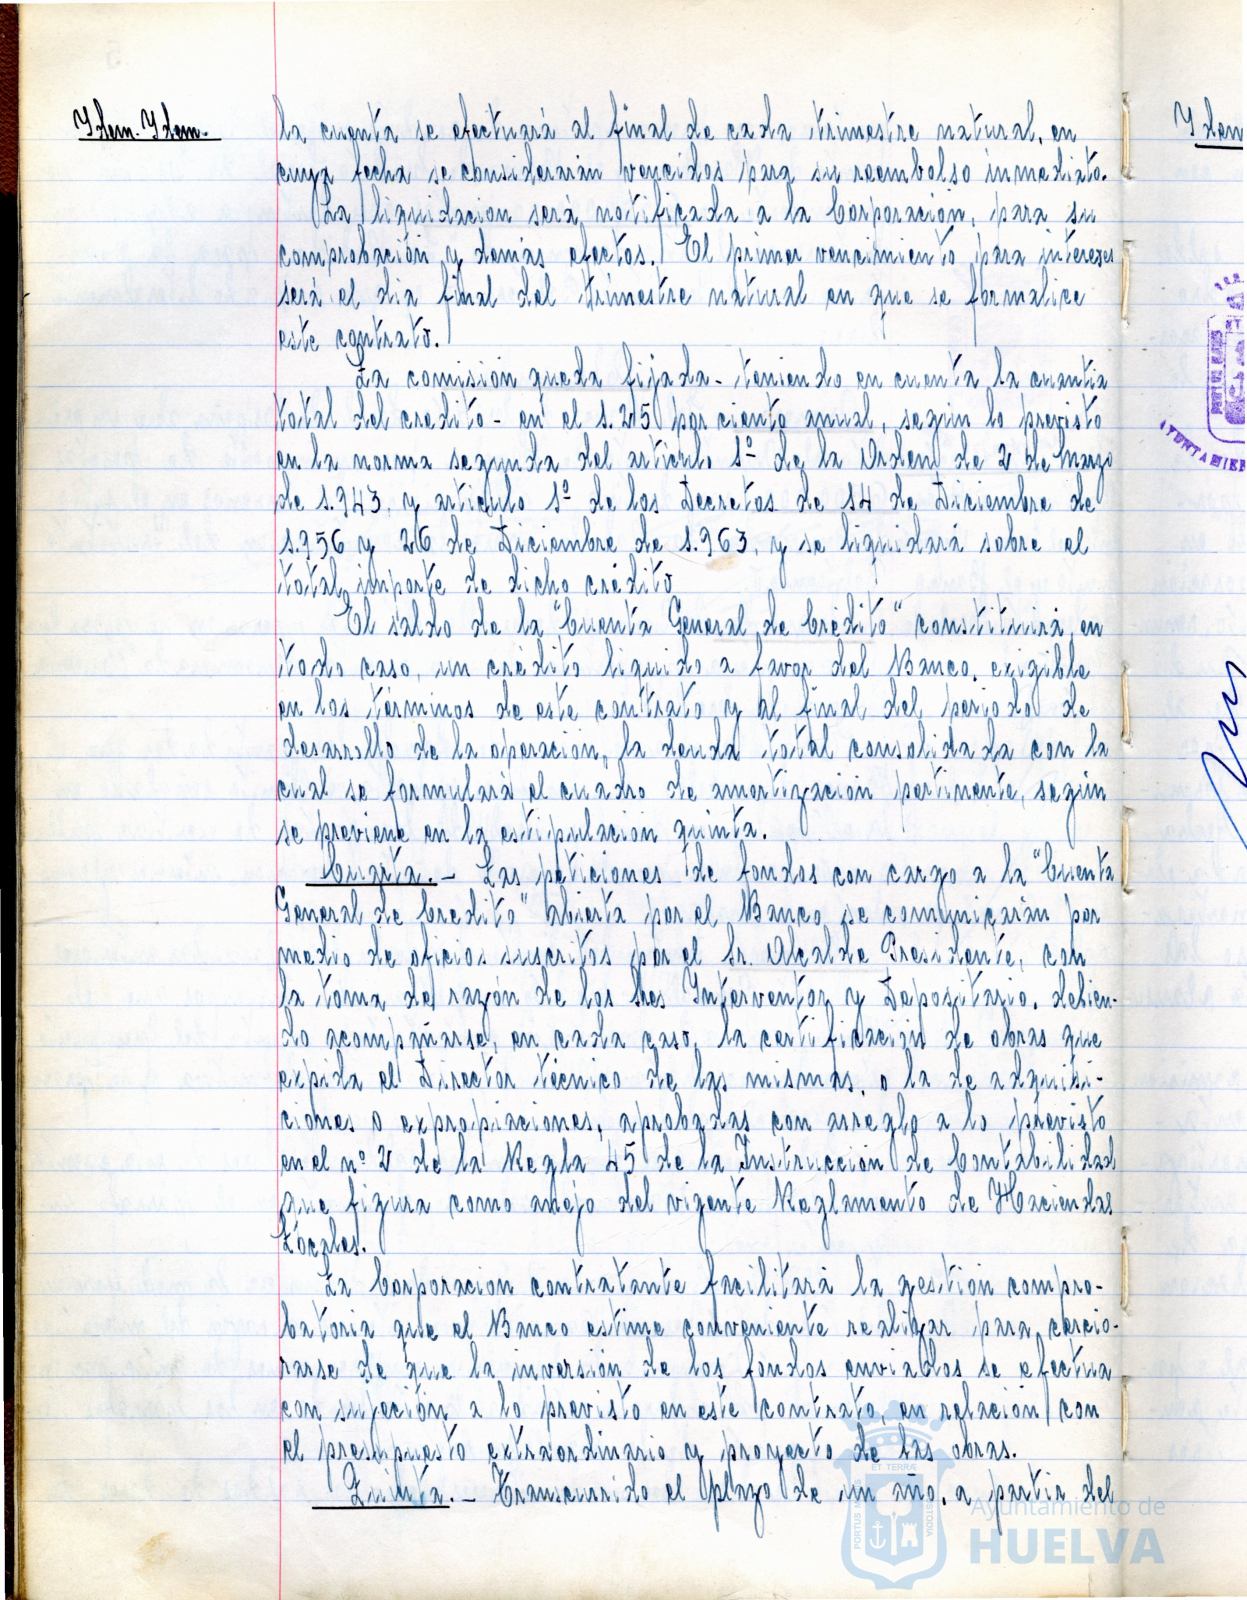 Idem. Idem.
la cuenta se efectuará al final de cada trimestre natural, en
cuya fecha se considerarán vencidos para su reembolso inmediato.
La liquidación será notificada a la Corporación, para su
comprobación y demás efectos. El primer vencimiento para intereses
será el dia final del trimestre natural en que se formalice
este contrato.
La comisión queda fijada - teniendo en cuenta la cuantia
total del credito - en el 1.25 por ciento anual, según lo previsto
en la norma segunda del articulo 1º de la Orden de 2 de Marzo
de 1.943, y articulo 1º de los Decretos de 14 de Diciembre de
1.956 y 26 de Diciembre de 1.963, y se liquidará sobre el
total importe de dicho crédito
El saldo de la "Cuenta General de Crédito" constituirá, en
todo caso, un crédito liquido a favor del Banco, exigible
en los términos de este contrato y al final del periodo de
desarrollo de la operación, la deuda total consolidada con la
cual se formulará el cuadro de amortización pertinente, según
se previene en la estipulación quinta.
Cuarta. - Las peticiones de fondos con cargo a la "Cuenta
General de Credito" abierta por el Banco, se comunicarán por
medio de oficios suscritos por el Sr. Alcalde Presidente, con
la toma de razón de los Sres Interventor y Depositario, debien-
do acompañarse, en cada caso, la certificación de obras que
expida el Director técnico de las mismas, o la de adquisi-
ciones o expropiaciones, aprobadas con arreglo a lo previsto
en el nº 2 de la Regla 45 de la Instrucción de Contabilidad
que figura como anejo del vigente Reglamento de Haciendas
Locales.
La Corporación contratante facilitará la gestión compro-
batoria que el Banco estime conveniente realizar para cercio-
rarse de que la inversión de los fondos enviados se efectua
con sujeción a lo previsto en este contrato, en relación con
el presupuesto extraordinario y proyecto de las obras.
Quinta. - Transcurrido el plazo de un año, a partir del
Idem
PORTUS MARIS
ET TERRÆ
CUSTODIA
Ayuntamiento de
HUELVA